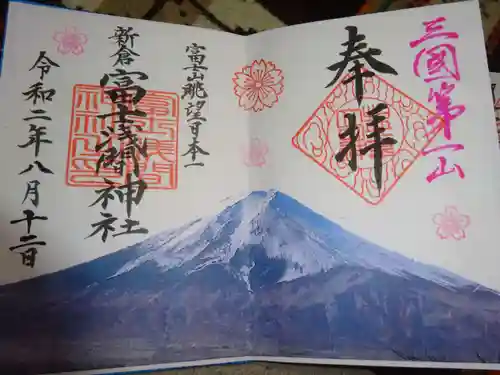 三國第一山
奉拝
富士山眺望日本一
新倉
富士浅間神社
令和二年八月十二日